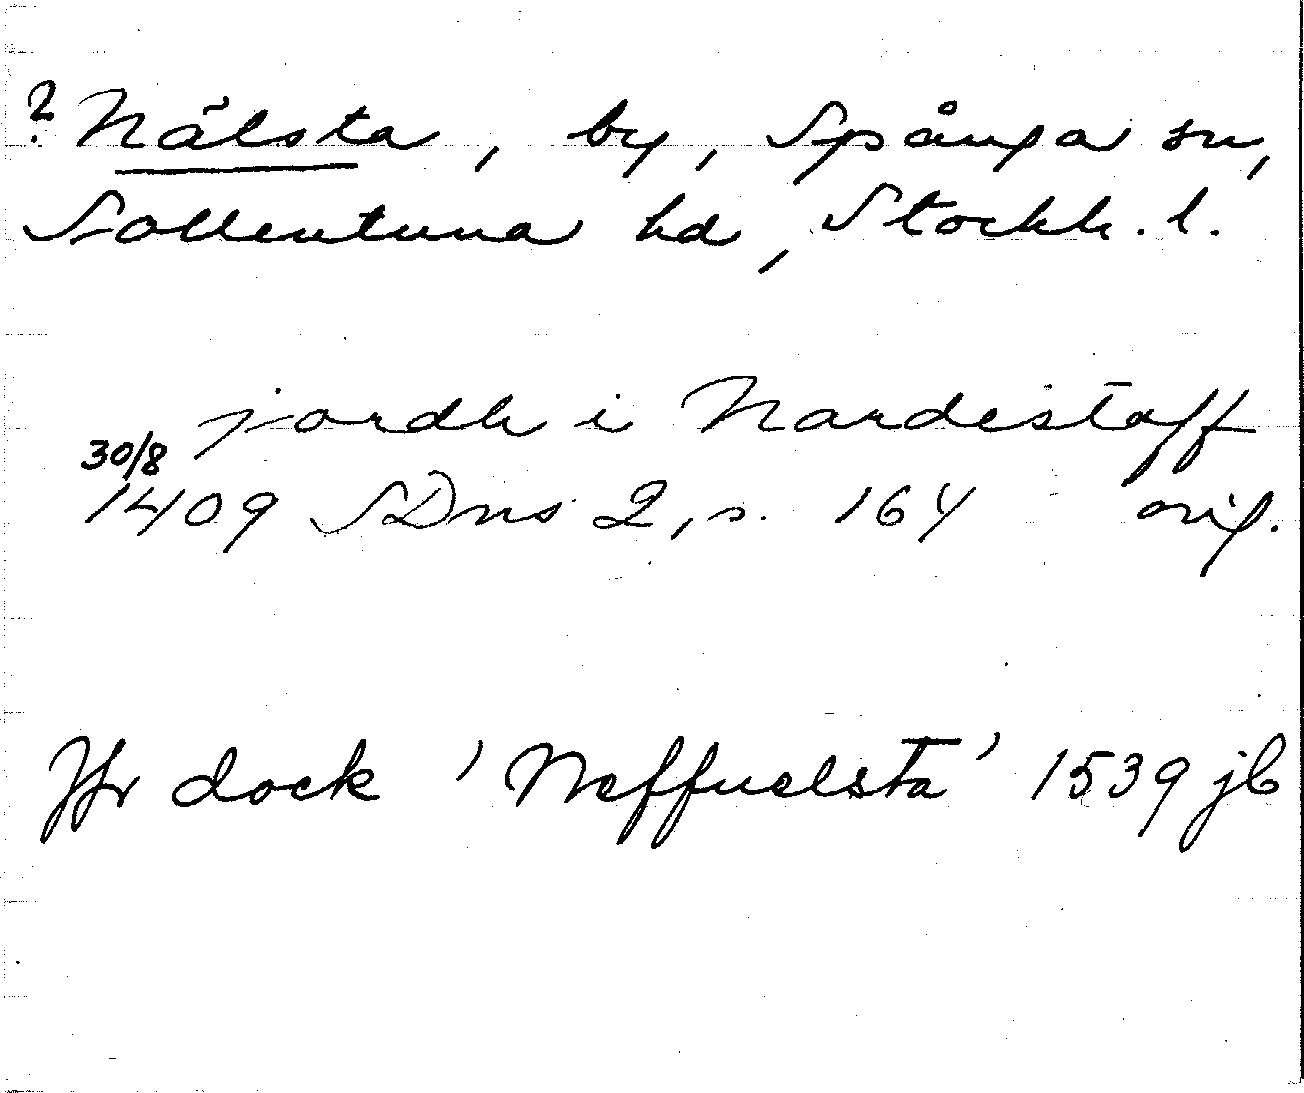 ? Nälsta, by, Spånga sn,
Sollentuna hd, Stockh. l.
jordh i Nardestaff
30/8
1409 SDns 2, s. 164 orig.
Jfr dock 'Neffuelsta' 1539 jb